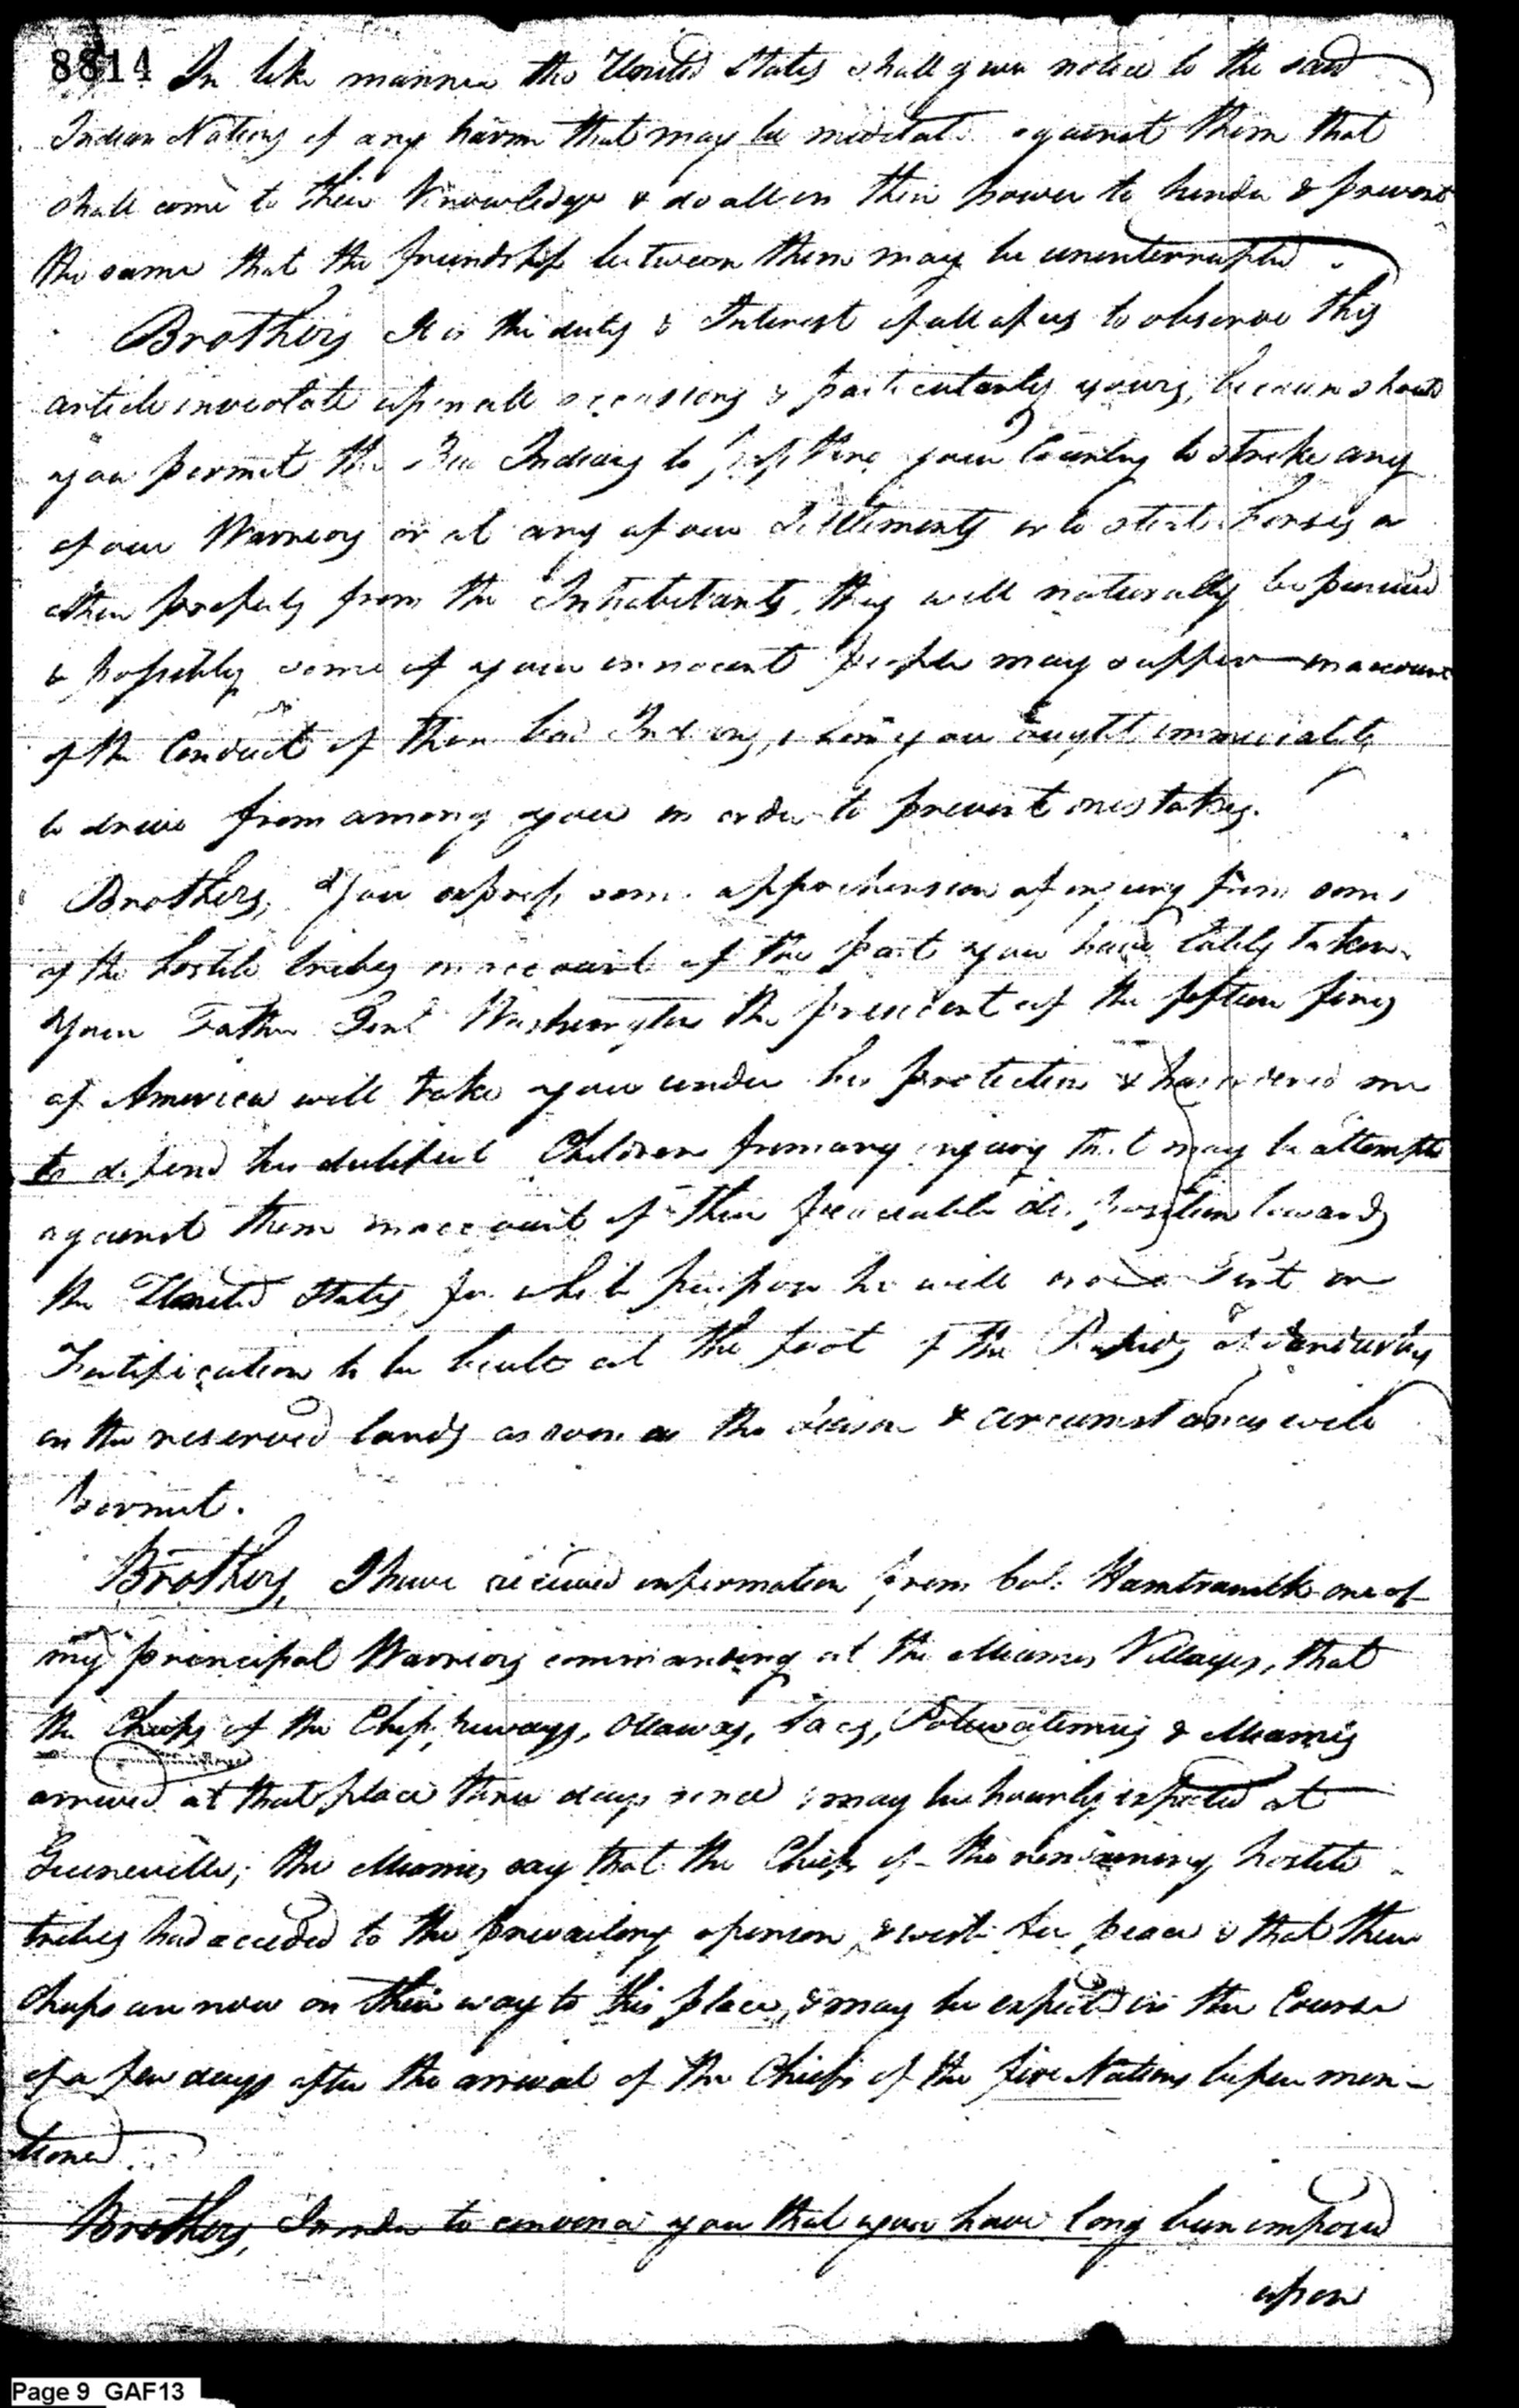 8814 In like manner the United States shall give notice to the said
Indian Nations of any harm that may be meditated against them that
shall come to their Knowledge & do all in their power to hinder & prevent
the same that the friendship between them may be uninterrupted.
Brothers It is the duty & Interest of all of us to observe this
article inviolate upon all occasions & particularly yours, because should
you permit the Bad Indians to pass thro your Country to strike any
of our Warriors or at any of our Settlements or to steal Horses or
other property from the Inhabitants, they will naturally be pursued
& possibly some of your innocent people may suffer on account
of the Conduct of those bad Indians, whom you ought immediately
to drive from among you in order to prevent mistakes.
Brothers, You express some apprehension of injury from some
of the hostile tribes on account of the part you have lately taken.
Your Father Genl Washington the president of the fifteen fires
of America will take you under his protection & has ordered me
to defend his dutiful Children from any injury that may be attempted
against them on account of their peaceable disposition towards
the United States, for which purpose he will order a Fort or
Fortification to be built at the foot of the Rapids of Sandusky
on the reserved lands as soon as the season & circumstances will
permit.
Brothers, I have received information from Col: Hamtramck one of
my principal Warriors commanding at the Miamis Villages, that
the Chiefs of the Chippeways, Ottaways, Sacs, Potowatimies & Miamis
arrived at that place three days since & may be hourly expected at
Greeneville; the Miamis say that the Chiefs of the remaining hostile
tribes had acceded to the prevailing opinion & wish for peace & that their
chiefs are now on their way to this place, & may be expected in the Course
of a few days after the arrival of the Chiefs of the five Nations before men-
tioned.
Brothers, In order to convince you that you have long been imposed
upon
Page 9 GAF13